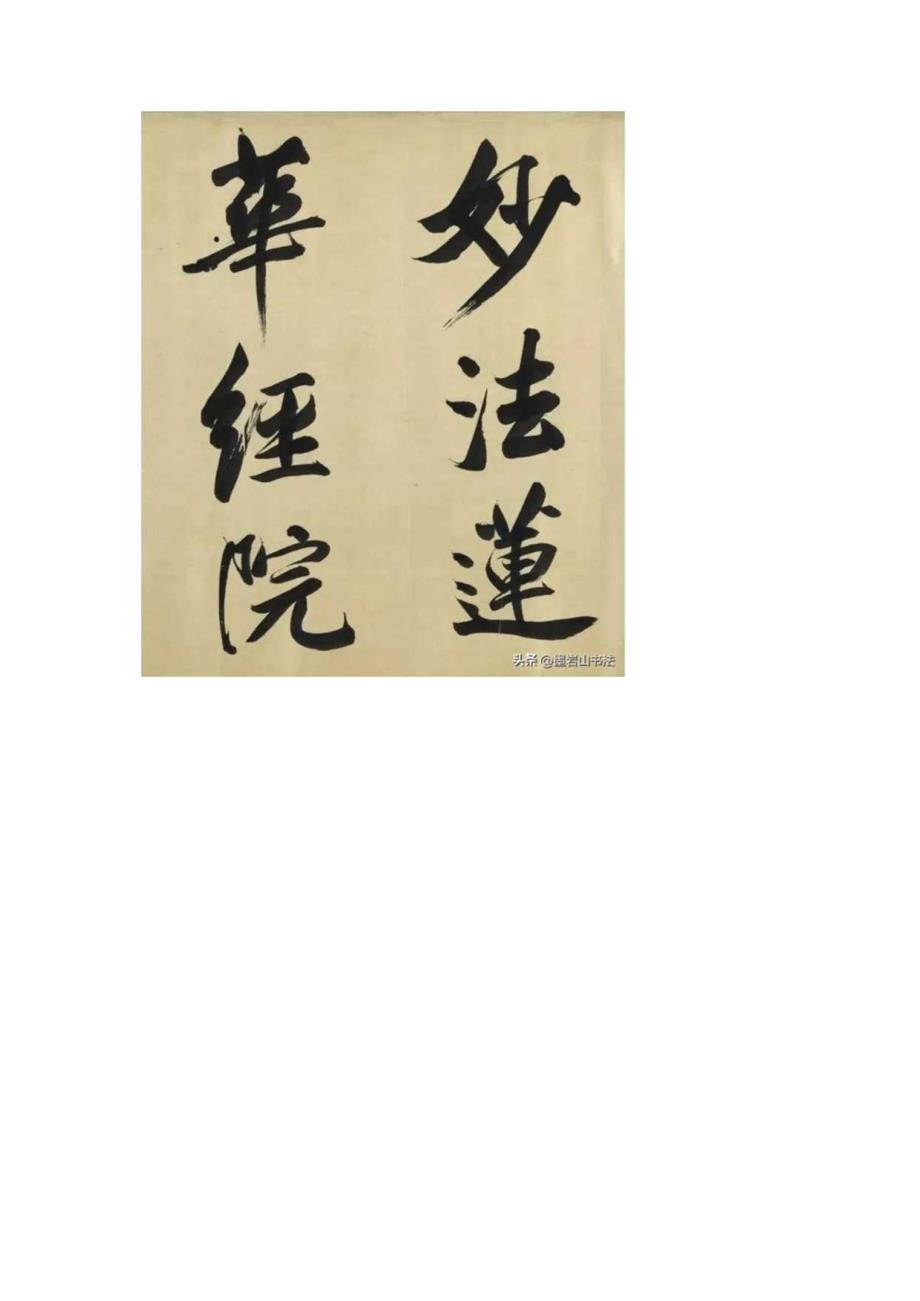 妙法蓮
華經院
头条 @墨岩山书法